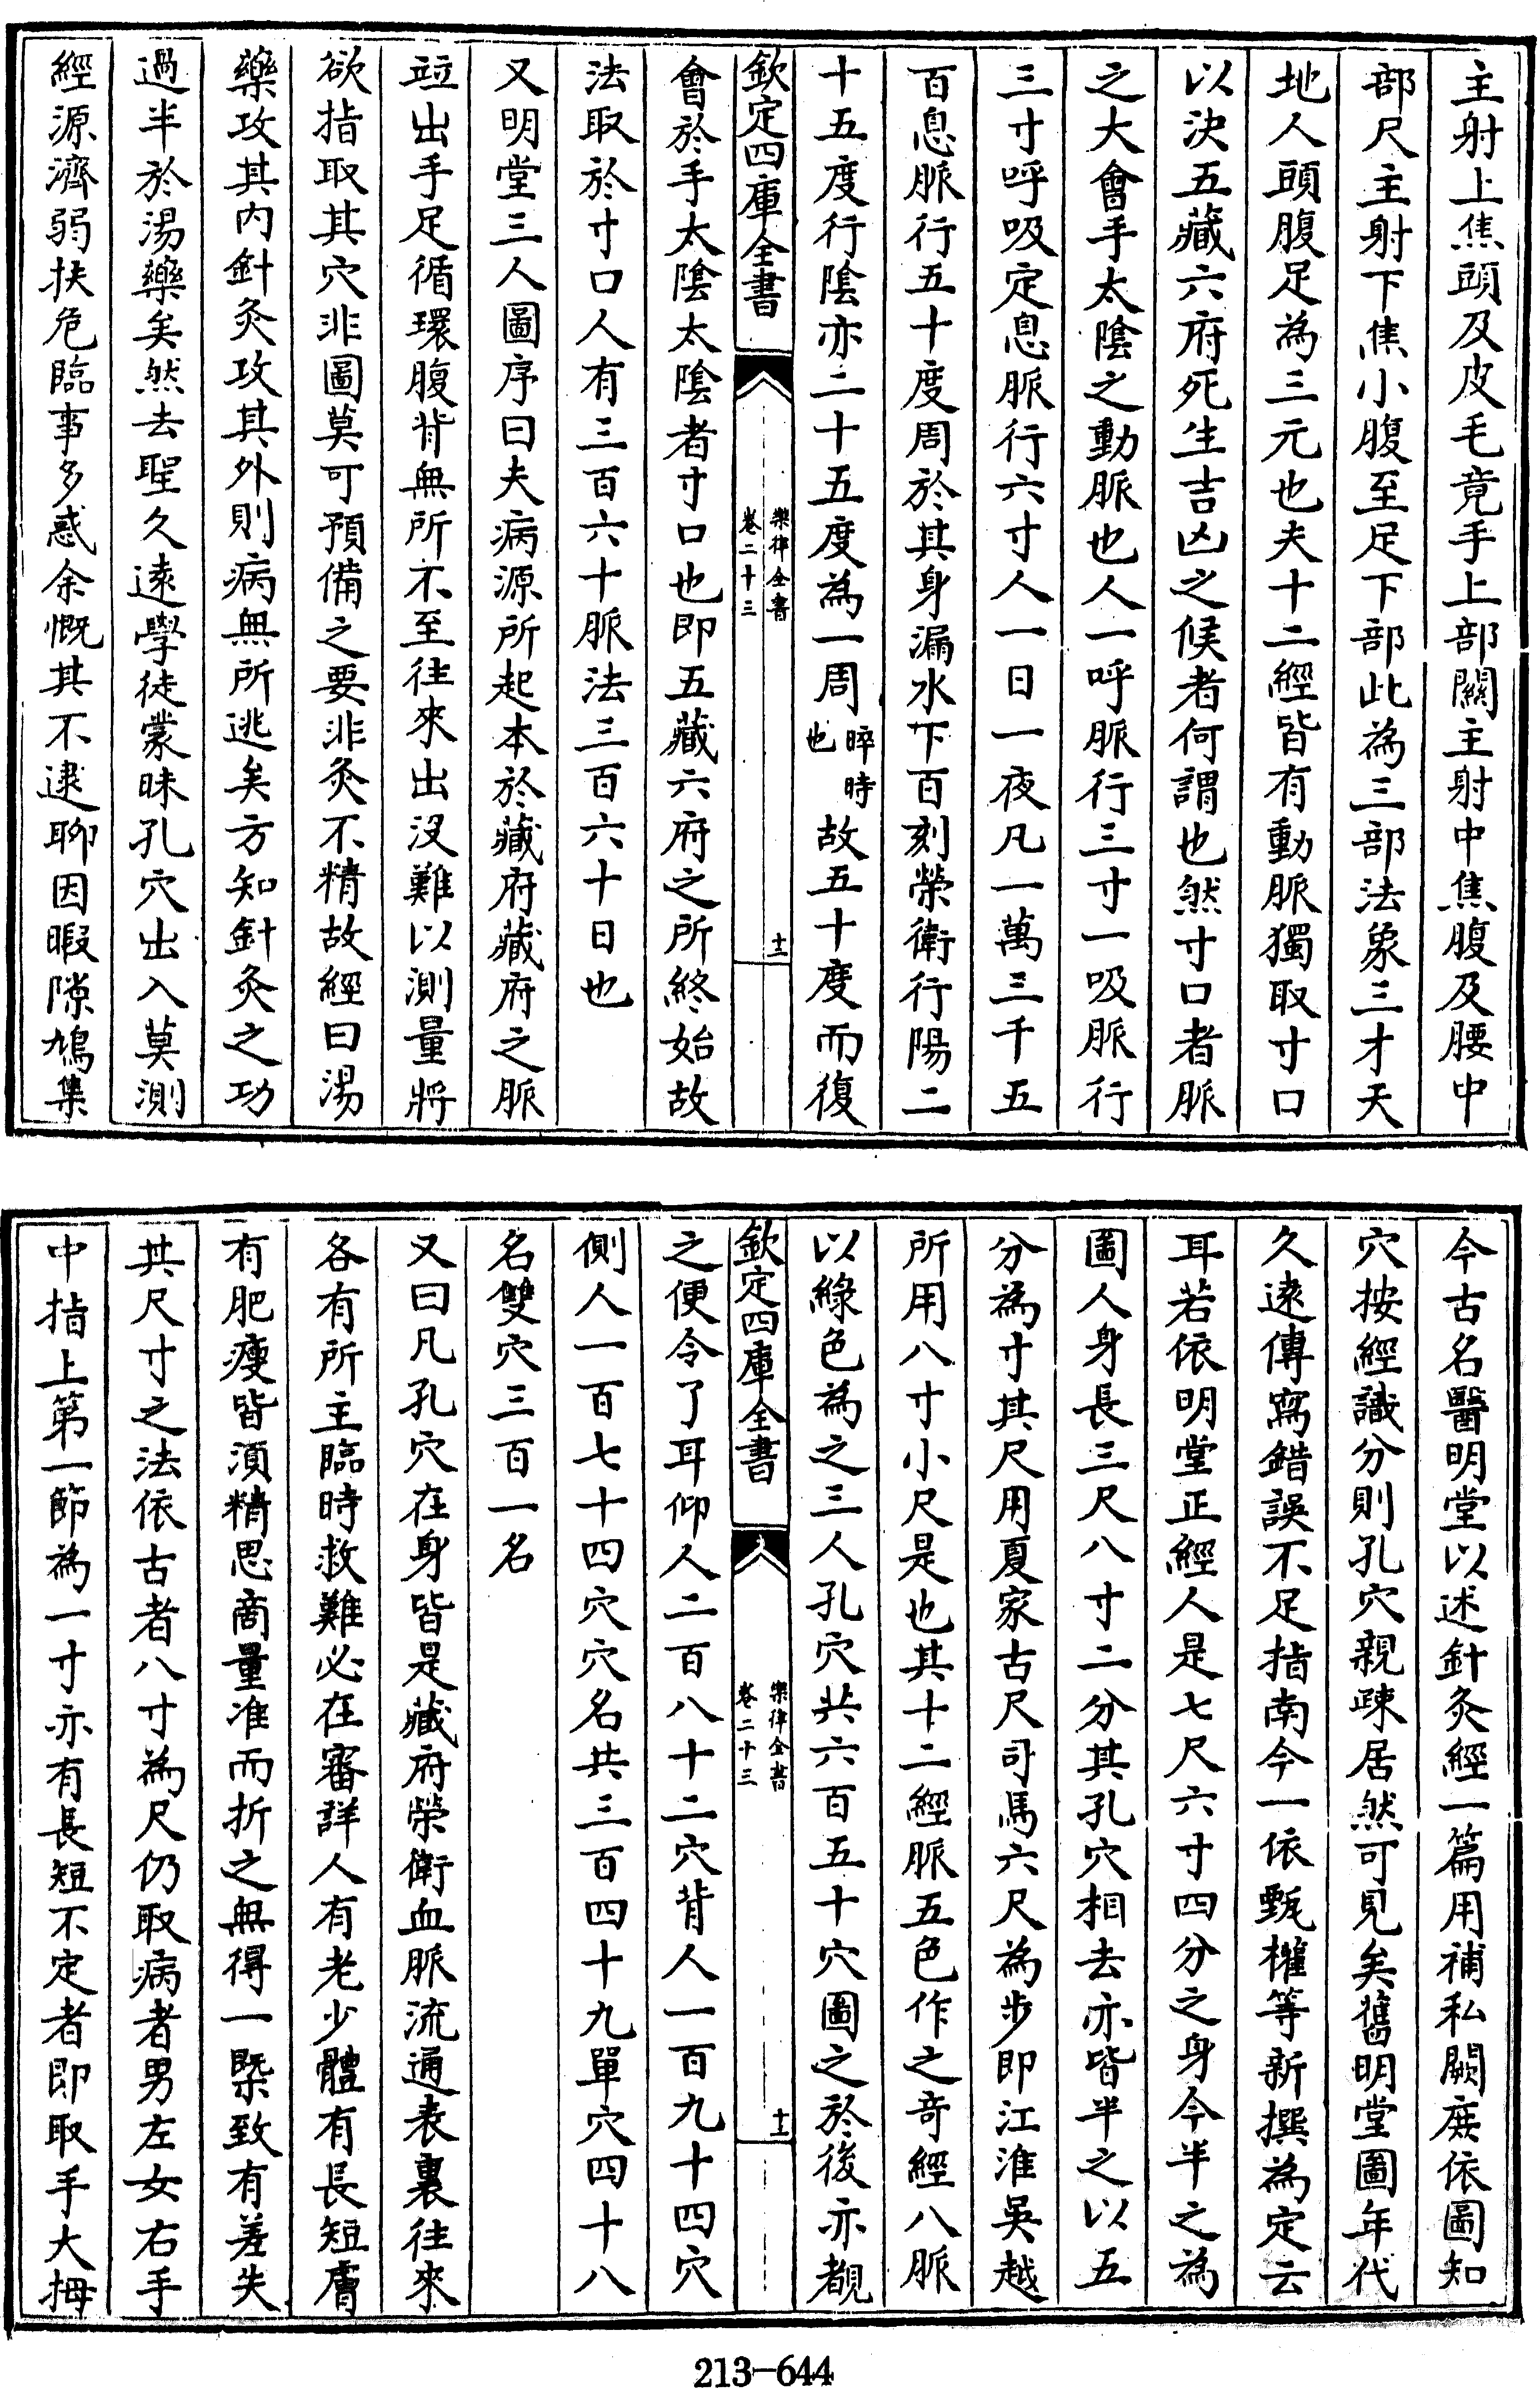 主射上焦頭及皮毛竟手上部關主射中焦腹及腰中
部尺主射下焦小腹至足下部此為三部法象三才天
地人頭腹足為三元也夫十二經皆有動脈獨取寸口
以決五藏六府死生吉凶之候者何謂也然寸口者脈
之大會手太陰之動脈也人一呼脈行三寸一吸脈行
三寸呼吸定息脈行六寸人一日一夜凡一萬三千五
百息脈行五十度周於其身漏水下百刻榮衛行陽二
十五度行陰亦二十五度為一周晬時也故五十度而復
欽定四庫全書
樂律全書
卷二十三
十一
會於手太陰太陰者寸口也即五藏六府之所終始故
法取於寸口人有三百六十脈法三百六十日也
又明堂三人圖序曰夫病源所起本於藏府藏府之脈
竝出手足循環腹背無所不至往來出沒難以測量將
欲指取其穴非圖莫可預備之要非灸不精故經曰湯
藥攻其內針灸攻其外則病無所逃矣方知針灸之功
過半於湯藥矣然去聖久遠學徒蒙昧孔穴出入莫測
經源濟弱扶危臨事多惑余慨其不逮聊因暇隙鳩集
今古名醫明堂以述針灸經一篇用補私闕庶依圖知
穴按經識分則孔穴親疎居然可見矣舊明堂圖年代
久遠傳寫錯誤不足指南今一依甄權等新撰為定云
耳若依明堂正經人是七尺六寸四分之身今半之為
圖人身長三尺八寸二分其孔穴相去亦皆半之以五
分為寸其尺用夏家古尺司馬六尺為步即江淮吳越
所用八寸小尺是也其十二經脈五色作之奇經八脈
以綠色為之三人孔穴共六百五十穴圖之於後亦覩
欽定四庫全書
樂律全書
卷二十三
十二
之便令了耳仰人二百八十二穴背人一百九十四穴
側人一百七十四穴穴名共三百四十九單穴四十八
名雙穴三百一名
又曰凡孔穴在身皆是藏府榮衛血脈流通表裏往來
各有所主臨時救難必在審詳人有老少體有長短膚
有肥瘦皆須精思商量准而折之無得一槩致有差失
其尺寸之法依古者八寸為尺仍取病者男左女右手
中指上第一節為一寸亦有長短不定者即取手大拇
213-644